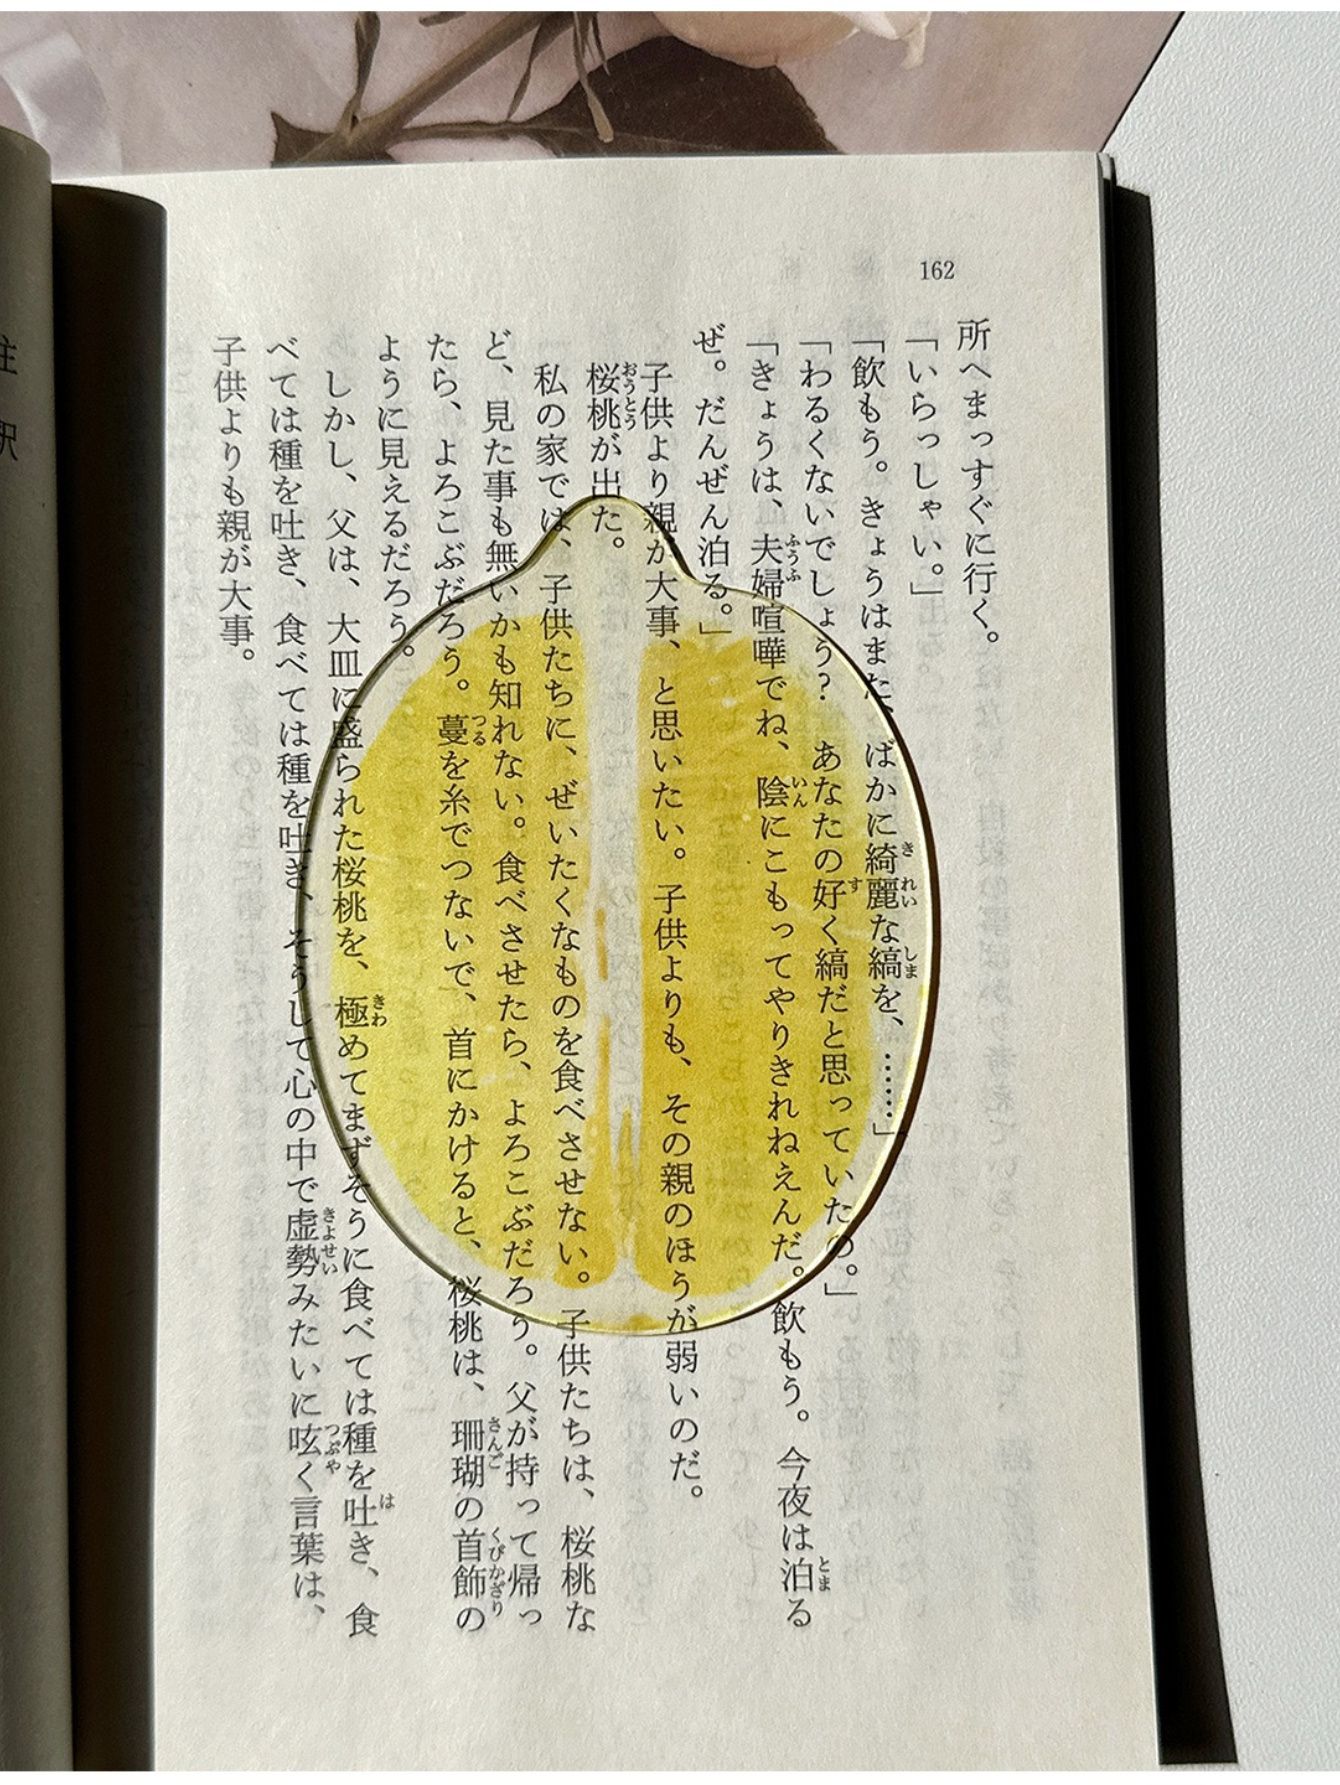 162
所へまっすぐに行く。
「いらっしゃい。」
「飲もう。きょうはまた、ばかに綺麗な縞を、……」
「わるくないでしょう? あなたの好く縞だと思っていたの。」
「きょうは、夫婦喧嘩でね、陰にこもってやりきれねえんだ。飲もう。今夜は泊る
ぜ。だんぜん泊る。」
子供より親が大事、と思いたい。子供よりも、その親のほうが弱いのだ。
桜桃が出た。
私の家では、子供たちに、ぜいたくなものを食べさせない。子供たちは、桜桃な
ど、見た事も無いかも知れない。食べさせたら、よろこぶだろう。父が持って帰っ
たら、よろこぶだろう。蔓を糸でつないで、首にかけると、桜桃は、珊瑚の首飾の
ように見えるだろう。
しかし、父は、大皿に盛られた桜桃を、極めてまずそうに食べては種を吐き、食
べては種を吐き、食べては種を吐き、そうして心の中で虚勢みたいに呟く言葉は、
子供よりも親が大事。
注 釈